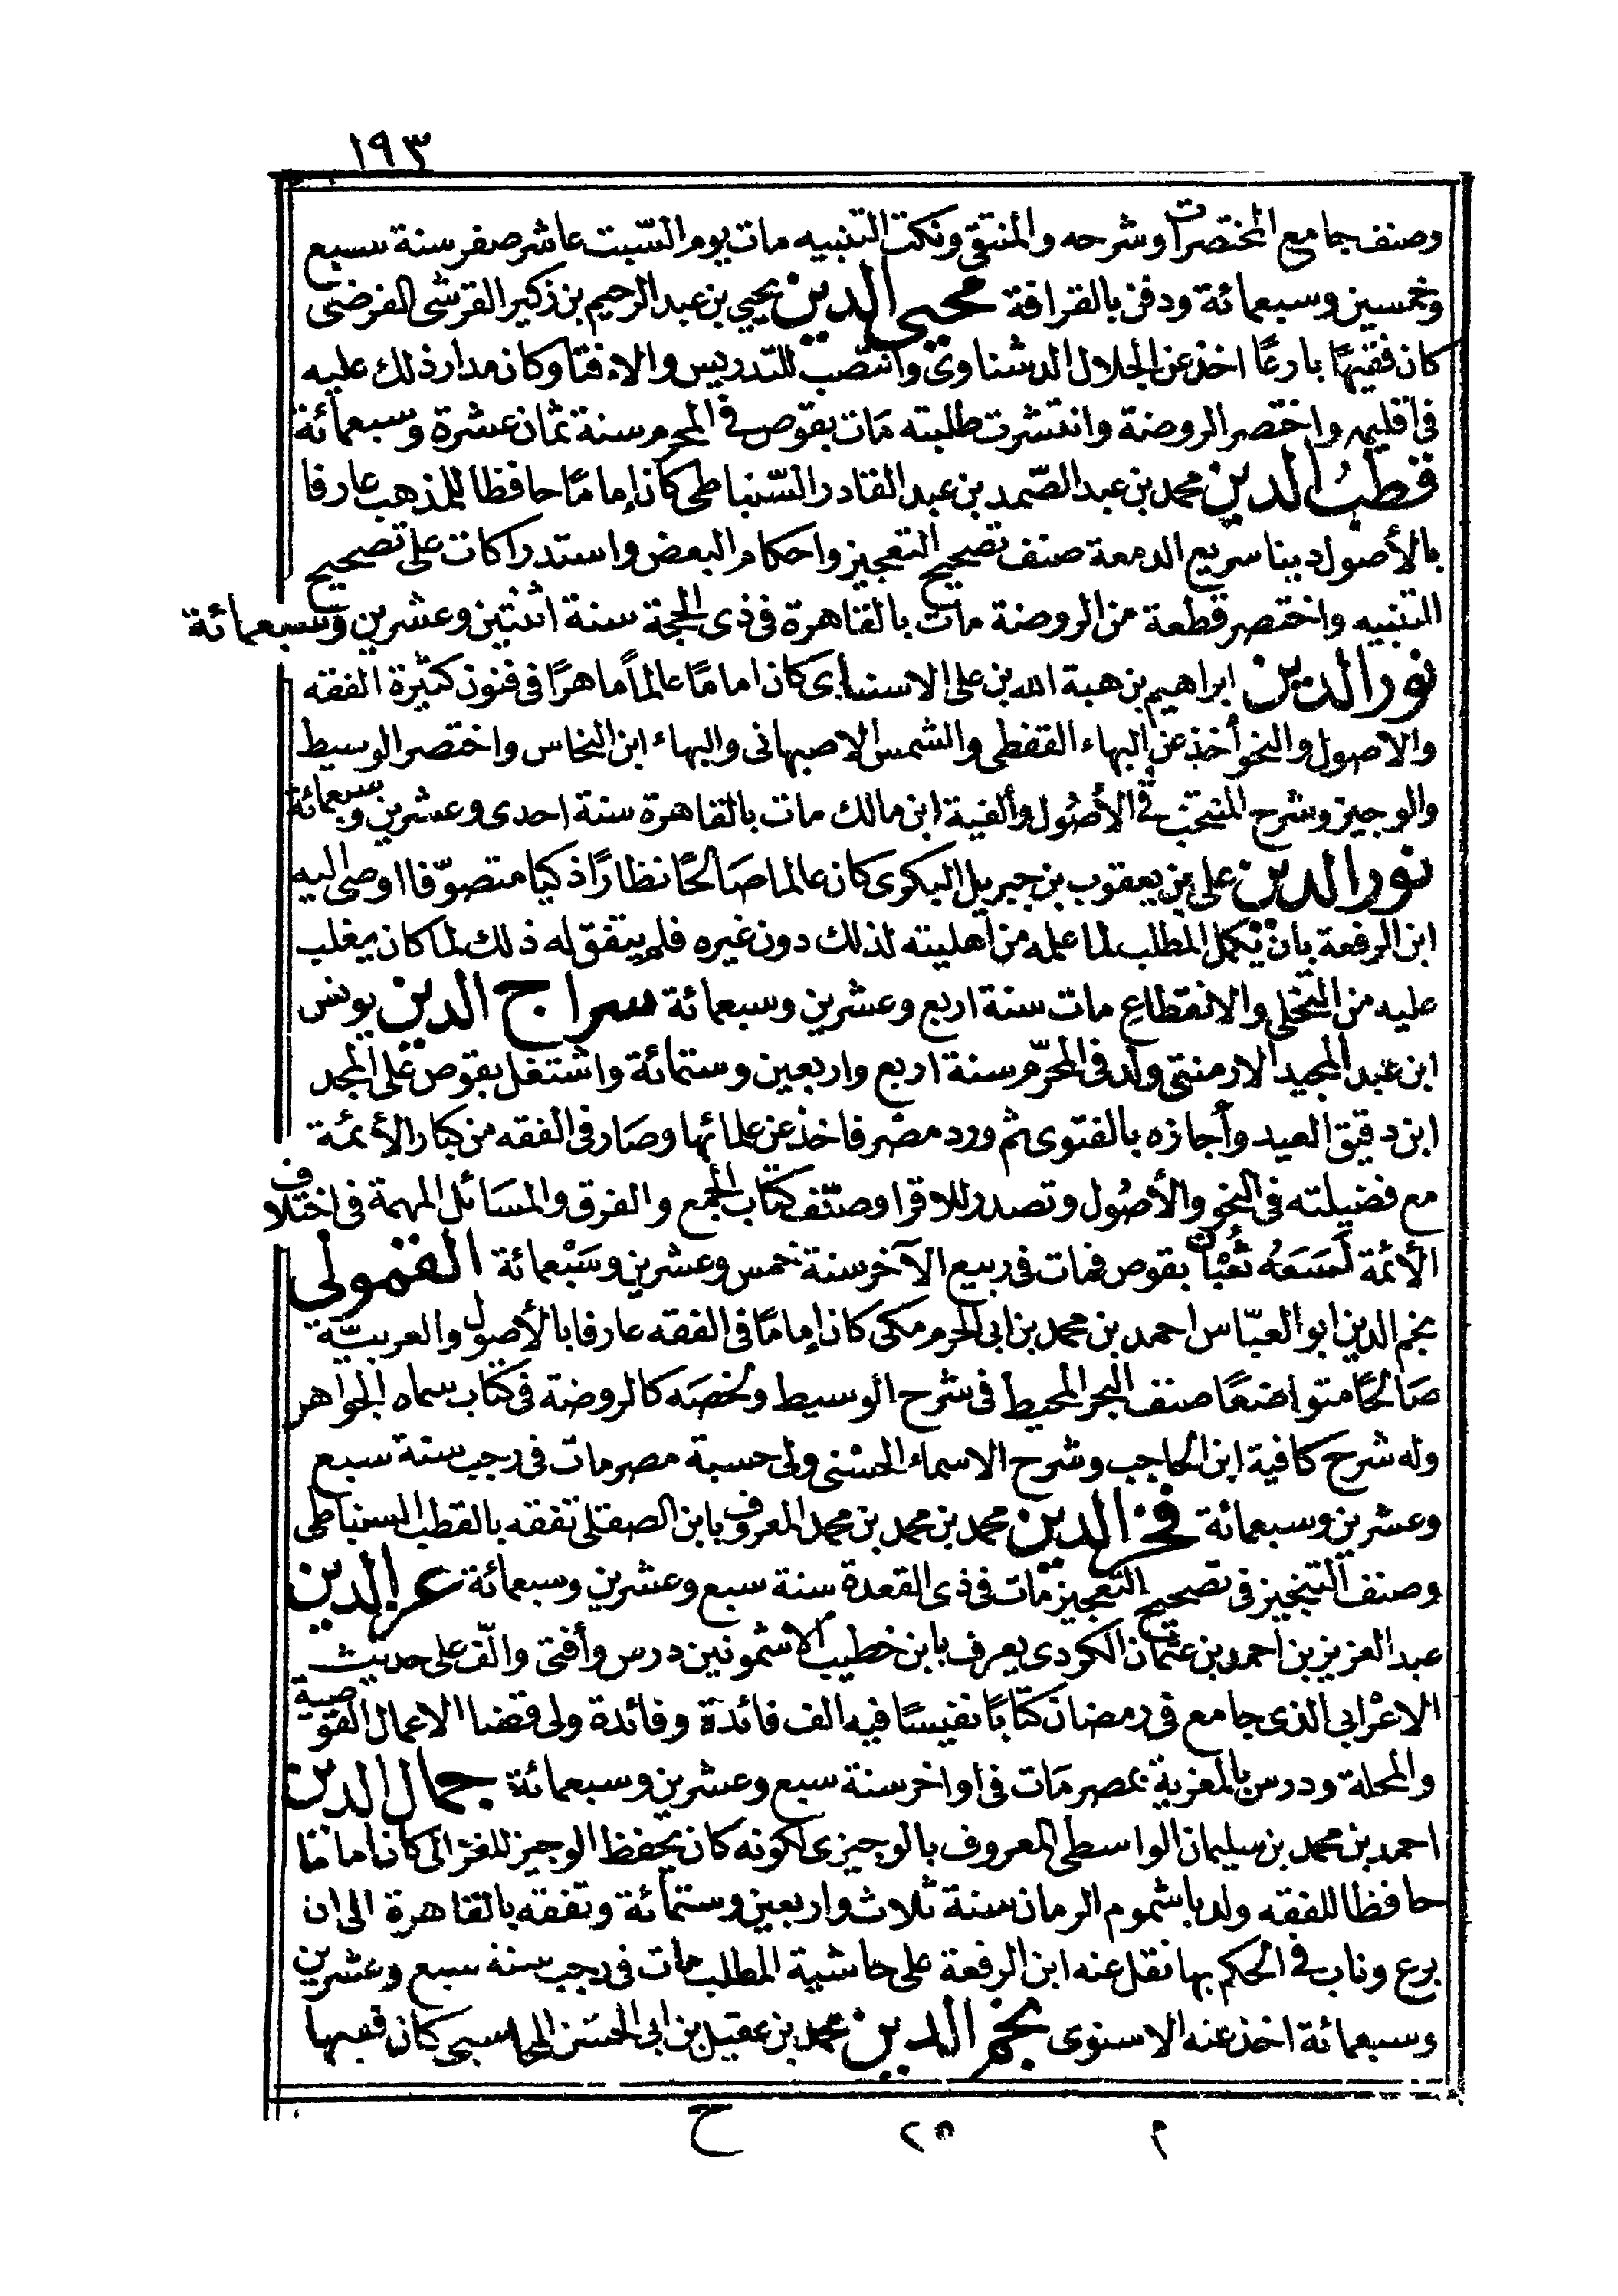 ١٩٣
وصنف جامع المختصرات وشرحه والمنتقى ونكت التنبيه مات يوم السّبت عاشر صفر سنة سبع
وخمسين وسبعمائة ودفن بالقرافة محيي الدين يحيي بن عبد الرحيم بن زكير القرشى الفرضى
كان فقيهًا بارعًا اخذ عن الجلال الدشناوى وانتصّب للتدريس والافتا وكان مدار ذلك عليه
فى اقليمه واختصر الروضة وانتشرت طلبته مَات بقوص فى المحرم سنة ثمان عشرة وسبعمائة
قطبُ الدين محمد بن عبد الصّمد بن عبد القادر السّنباطى كان إمامًا حافظا للمذهب عارفا
بالأصول دينا سريع الدمعة صنف تصحيح التعجيز واحكام البعض واستدراكات على تصحيح
التنبيه واختصر قطعة من الروضة مات بالقاهرة فى ذى الحجة سنة اثنتين وعشرين وسبعمائة
نور الدين ابراهيم بن هبة الله بن على الاسنباى كان امامًا عالماً ماهرًا فى فنون كثيرة الفقه
والاصول والنحو أخذ عن البهاء القفطى والشمس الاصبهانى والبهاء ابن النحاس واختصر الوسيط
والوجيز وشرح المنتخب فى الأصُول وألفية ابن مالك مات بالقاهرة سنة احدى وعشرين وسبعمائة
نور الدين على بن يعقوب بن جبريل البكرى كان عالما صَالحًا نظارًا ذكيا متصوّفا اوصى اليه
ابن الرفعة بان يكمل المطلب لما علمه من أهليته لذلك دون غيره فلم يتفق له ذلك لما كان يغلب
عليه من التخلى والانقطاع مات سنة اربع وعشرين وسبعمائة سراج الدين يونس
ابن عبد المجيد الارمنتى ولد فى المحرّم سنة اربع واربعين وستمائة واشتغل بقوص على المجد
ابن دقيق العيد وأجازه بالفتوى ثم ورد مصْر فاخذ عن علمائها وصَار فى الفقه من كبار الأئمة
مع فضيلته فى النحو والأصُول وتصدر للاقرا وصنّف كتاب الجمع والفرق والمسَائل المهمة فى اختلاف
الأئمة لَسَعَهُ ثُعْبَان بقوص فمات فى ربيع الآخر سنة خمس وعشرين وسَبْعمائة القمولى
نجم الدين ابو العبّاس احمد بن محمد بن ابى الحرم مكى كان إمامًا فى الفقه عارفا بالأصول والعربيّة
صَالحًا متواضعًا صنف البحر المحيط فى شرح الوسيط ولخصَه كالروضة فى كتاب سماه الجواهر
وله شرح كافية ابن الحاجب وشرح الاسماء الحسْنى ولى حسبة مصر مات فى رجب سنة سبع
وعشرين وسبعمائة فخر الدين محمد بن محمد بن محمد المعروف بابن الصقلى تفقه بالقطب السنباطى
وصنف التنجيز فى تصحيح التعجيز مات فى ذى القعدة سنة سبع وعشرين وسبعمائة عز الدين
عبد العزيز بن احمد بن عثمان الكردى يعرف بابن خطيب الاشمونين درس وأفتى والّف على حديث
الاعْرابى الذى جامع فى رمضان كتابًا نفيسًا فيه الف فائدة وفائدة ولى قضا الاعمال القوصية
والمحلة ودرس بالمعزية بمصر مَات فى اواخر سنة سبع وعشرين وسبعمائة جمال الدين
احمد بن محمد بن سليمان الواسطى المعروف بالوجيزى لكونه كان يحفظ الوجيز للغزالى كان امامًا
حافظا للفقه ولد باشموم الرمان سنة ثلاث واربعين وستمائة وتفقه بالقاهرة الى ان
برع وناب فى الحكم بها نقل عنه ابن الرفعة على حاشية المطلب مات فى رجب سنة سبع وعشرين
وسبعمائة اخذ عنه الاسنوى نجم الدين محمد بن عقيل بن ابى الحسَن البالسى كان فقيها
م ٢٥ ح